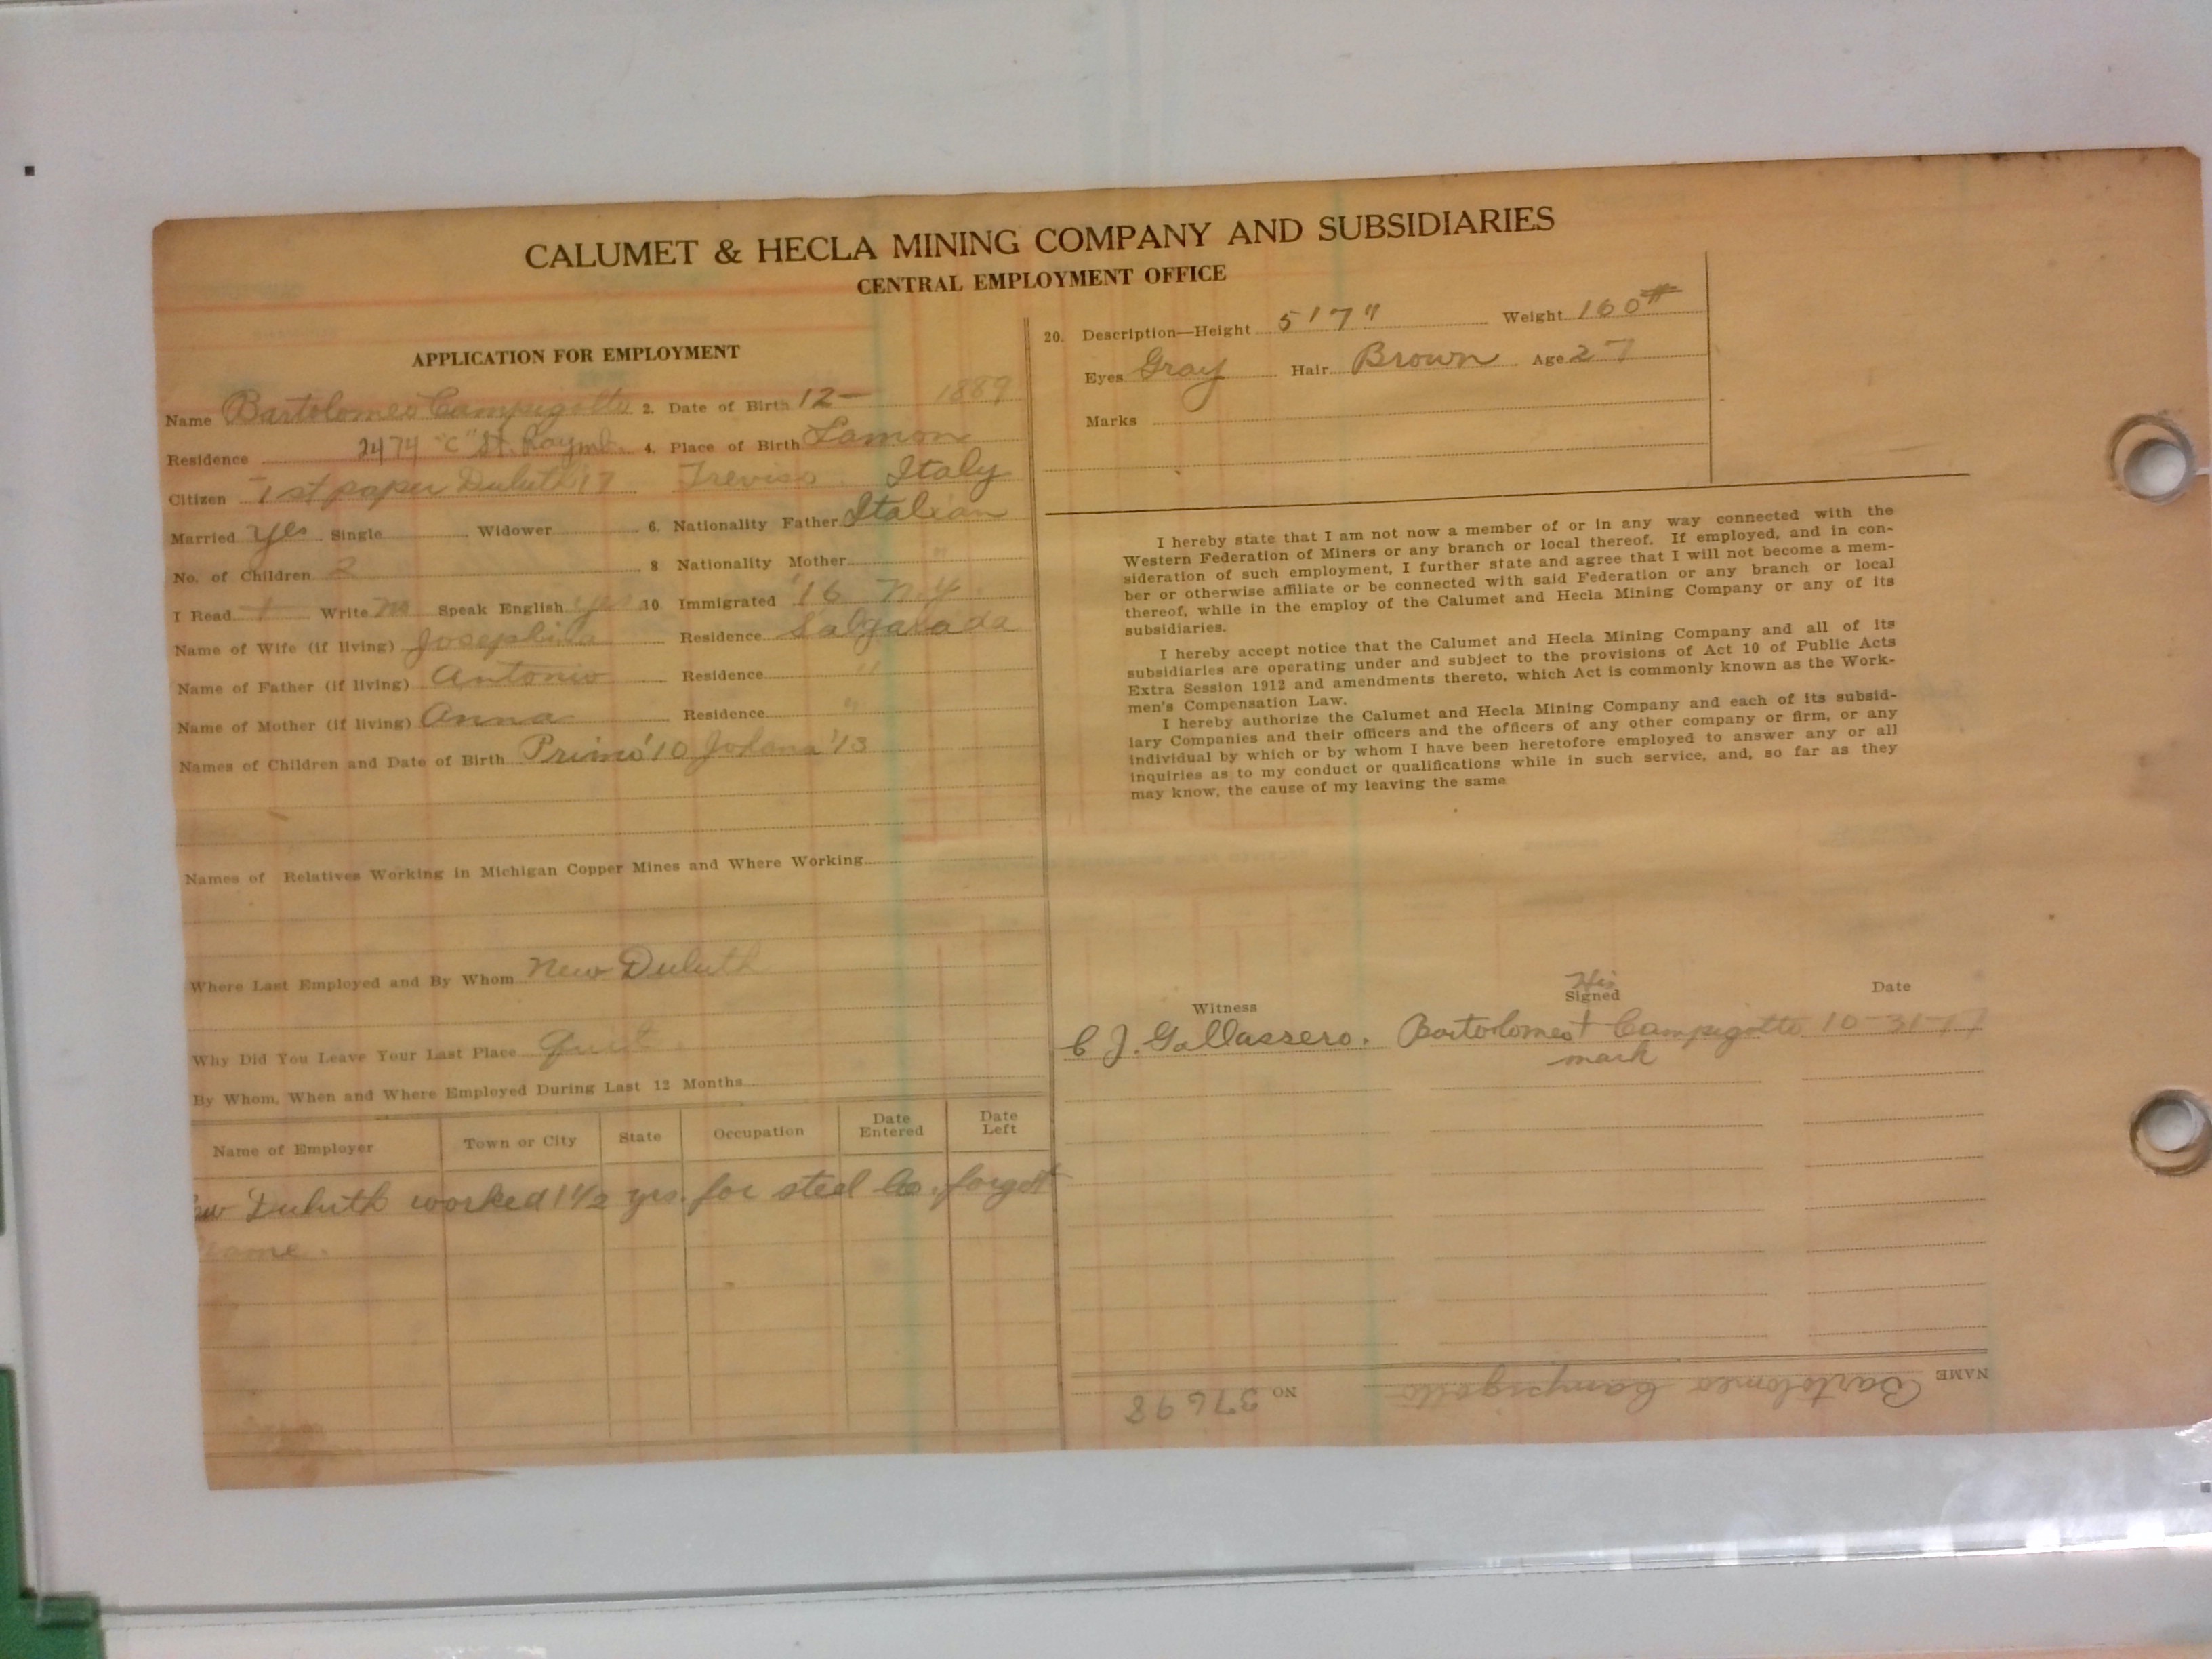 CALUMET & HECLA MINING COMPANY AND SUBSIDIARIES
CENTRAL EMPLOYMENT OFFICE
APPLICATION FOR EMPLOYMENT
Name Bartolomeo Campigotto 2. Date of Birth 12- 1889
Residence 2474 "C" St. Raymb. 4. Place of Birth Lamon
Citizen 1st paper Duluth '17 Treviso Italy
Married yes Single Widower 6. Nationality Father Italian
No. of Children 2 8 Nationality Mother "
I Read + Write no Speak English yes 10 Immigrated '16 N.Y.
Name of Wife (if living) Josephina Residence
Name of Father (if living) Antonio Residence "
Name of Mother (if living) Anna Residence "
Names of Children and Date of Birth Primo '10 Johana '13
Names of Relatives Working in Michigan Copper Mines and Where Working
Where Last Employed and By Whom New Duluth
Why Did You Leave Your Last Place Quit.
By Whom, When and Where Employed During Last 12 Months
Name of Employer Town or City State Occupation Date Entered Date Left
Duluth worked 1 1/2 yrs. for steel Co. forgot
name.
20. Description—Height 5'7" Weight 160#
Eyes Gray Hair Brown Age 27
Marks
I hereby state that I am not now a member of or in any way connected with the
Western Federation of Miners or any branch or local thereof. If employed, and in con-
sideration of such employment, I further state and agree that I will not become a mem-
ber or otherwise affiliate or be connected with said Federation or any branch or local
thereof, while in the employ of the Calumet and Hecla Mining Company or any of its
subsidiaries.
I hereby accept notice that the Calumet and Hecla Mining Company and all of its
subsidiaries are operating under and subject to the provisions of Act 10 of Public Acts
Extra Session 1912 and amendments thereto, which Act is commonly known as the Work-
men's Compensation Law.
I hereby authorize the Calumet and Hecla Mining Company and each of its subsid-
iary Companies and their officers and the officers of any other company or firm, or any
individual by which or by whom I have been heretofore employed to answer any or all
inquiries as to my conduct or qualifications while in such service, and, so far as they
may know, the cause of my leaving the same
His
Witness Signed Date
C J. Gallassero. Bartolomeo + Campigotto 10-31-17
mark
NAME Bartolomeo Campigotto NO 37698